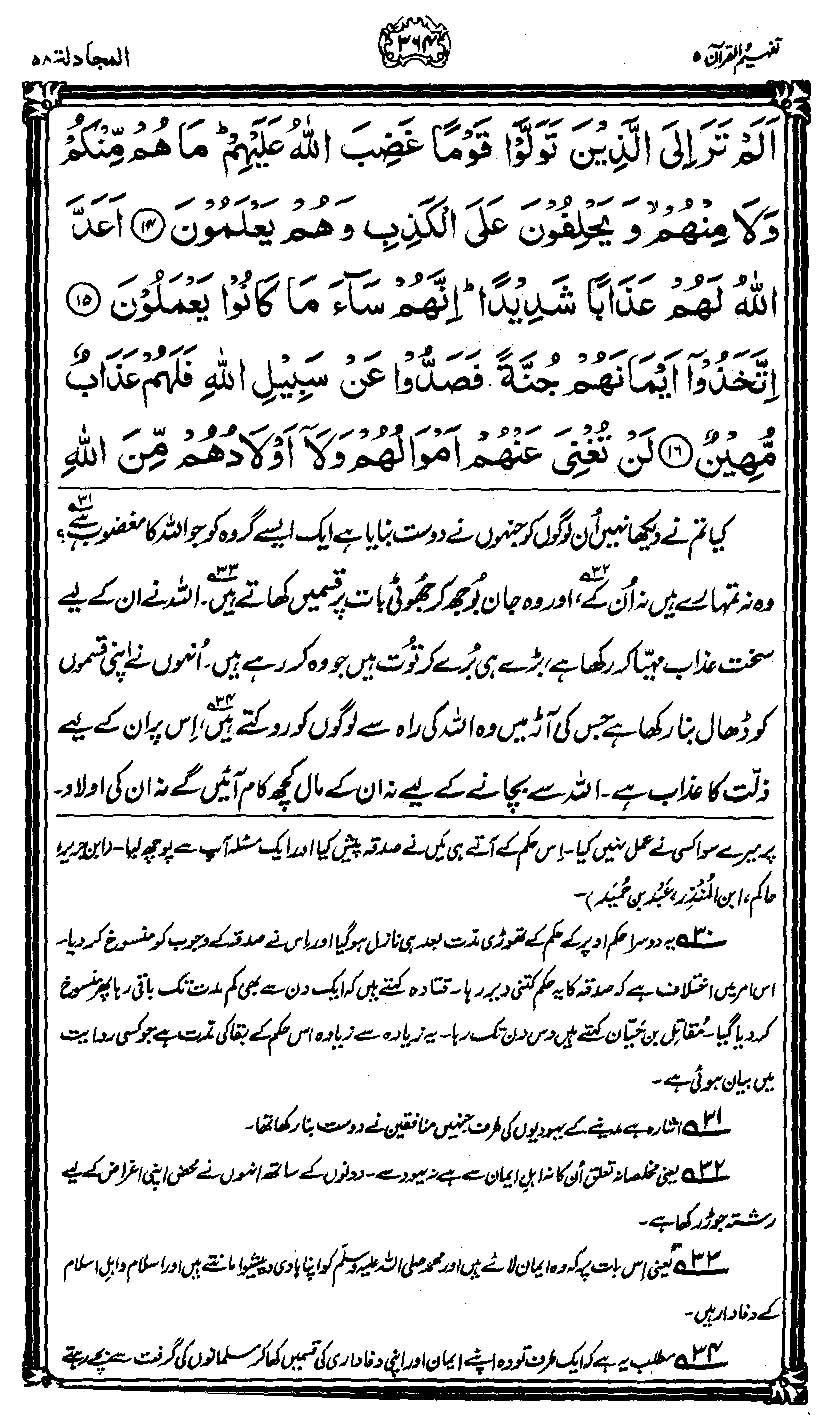 تفہیم القرآن ۵
۳۶۴
المجادلۃ ۵۸
اَلَمْ تَرَ اِلَى الَّذِيْنَ تَوَلَّوْا قَوْمًا غَضِبَ اللّٰهُ عَلَيْهِمْ ؕ مَا هُمْ مِّنْكُمْ
وَلَا مِنْهُمْ ۙ وَ يَحْلِفُوْنَ عَلَى الْكَذِبِ وَهُمْ يَعْلَمُوْنَ ﴿۱۴﴾ اَعَدَّ
اللّٰهُ لَهُمْ عَذَابًا شَدِيْدًا ؕ اِنَّهُمْ سَآءَ مَا كَانُوْا يَعْمَلُوْنَ ﴿۱۵﴾
اِتَّخَذُوْۤا اَيْمَانَهُمْ جُنَّةً فَصَدُّوْا عَنْ سَبِيْلِ اللّٰهِ فَلَهُمْ عَذَابٌ
مُّهِيْنٌ ﴿۱۶﴾ لَنْ تُغْنِيَ عَنْهُمْ اَمْوَالُهُمْ وَلَاۤ اَوْلَادُهُمْ مِّنَ اللّٰهِ
کیا تم نے دیکھا نہیں اُن لوگوں کو جنہوں نے دوست بنایا ہے ایک ایسے گروہ کو جو اللہ کا مغضوب ہے؟۳۱
وہ نہ تمہارے ہیں نہ اُن کے۳۲، اور وہ جان بُوجھ کر جھُوٹی بات پر قسمیں کھاتے ہیں۳۳۔ اللہ نے ان کے لیے
سخت عذاب مہیّا کر رکھا ہے، بڑے ہی بُرے کرتُوت ہیں جو وہ کر رہے ہیں۔ اُنہوں نے اپنی قسموں
کو ڈھال بنا رکھا ہے جس کی آڑ میں وہ اللہ کی راہ سے لوگوں کو روکتے ہیں۳۴، اِس پر ان کے لیے
ذلّت کا عذاب ہے۔ اللہ سے بچانے کے لیے نہ ان کے مال کچھ کام آئیں گے نہ ان کی اولاد۔
پر میرے سوا کسی نے عمل نہیں کیا۔ اِس حکم کے آتے ہی مَیں نے صدقہ پیش کیا اور ایک مسئلہ آپ سے پوچھ لیا۔ (ابن جریر،
حاکم، ابن المُنذِر، عَبد بن حُمَید)۔
۳۰ یہ دوسرا حکم اوپر کے حکم کے تھوڑی مدت بعد ہی نازل ہو گیا اور اس نے صدقہ کے وجوب کو منسوخ کر دیا۔
اس امر میں اختلاف ہے کہ صدقہ کا یہ حکم کتنی دیر رہا۔ قتادہ کہتے ہیں کہ ایک دن سے بھی کم مدت تک باقی رہا پھر منسوخ
کر دیا گیا۔ مُقاتِل بن حَیّان کہتے ہیں دس دن تک رہا۔ یہ زیادہ سے زیادہ اس حکم کے بقا کی مدت ہے جو کسی روایت
میں بیان ہوئی ہے۔
۳۱ اشارہ ہے مدینے کے یہودیوں کی طرف جنہیں منافقین نے دوست بنا رکھا تھا۔
۳۲ یعنی مخلصانہ تعلق اُن کا نہ اہلِ ایمان سے ہے نہ یہود سے۔ دونوں کے ساتھ انہوں نے محض اپنی اغراض کے لیے
رشتہ جوڑ رکھا ہے۔
۳۳ یعنی اِس بات پر کہ وہ ایمان لائے ہیں اور محمد صلی اللہ علیہ وسلّم کو اپنا ہادی و پیشوا مانتے ہیں اور اسلام و اہلِ اسلام
کے وفادار ہیں۔
۳۴ مطلب یہ ہے کہ ایک طرف تو وہ اپنے ایمان اور اپنی وفاداری کی قسمیں کھا کر مسلمانوں کی گرفت سے بچے رہتے